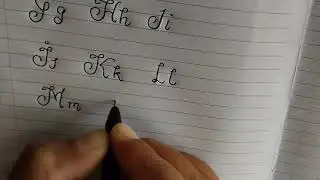 Gg Hh Ii
Jj Kk Ll
Mm